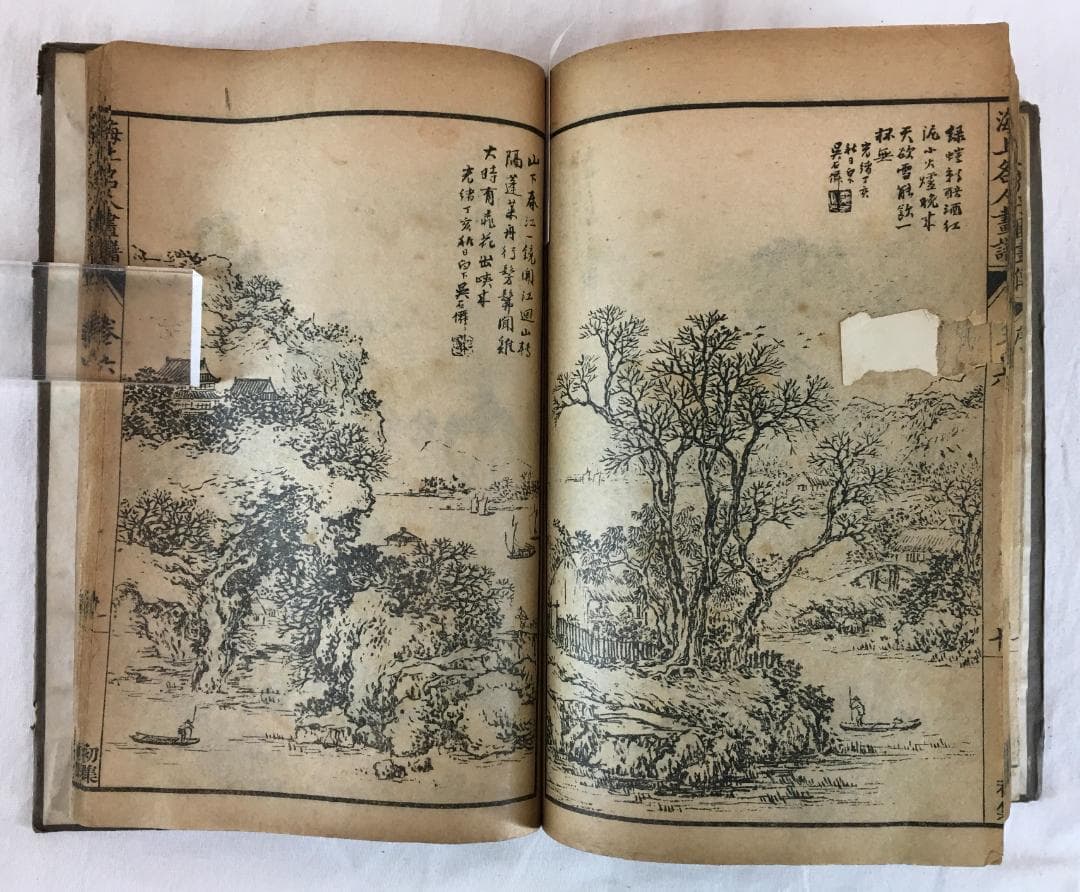 海上名人畫譜
綠螘新醅酒紅
泥小火爐晚來
天欲雪能飲一
杯無
光緒丁亥
秋日
吳石僊
山下春江一鏡開江迴山轉
隔蓬萊舟行髣髴聞雞
犬時有飛花出峽來
光緒丁亥秋日白下吳石僊
海上名人畫譜
卷六
初集